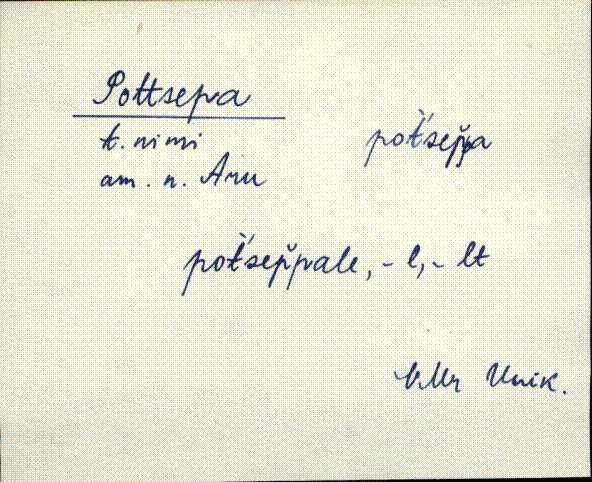 Pottsepa
t. nimi
am. n. Aru
pot̆'sep̆pa
pot̆'sep̆pale, - l, - lt
V.Mr Unik.